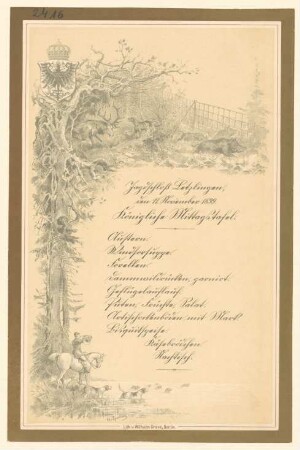 2416
Jagdschloß Letzlingen,
den 11. November 1899.
Königliche Mittags-Tafel.
Austern.
Windsorsuppe.
Forellen.
Dammwildrücken, garnirt.
Geflügelauflauf.
Puten, Früchte, Salat.
Artischockenböden mit Mark.
Biscuitspeise.
Käsebrödchen.
Nachtisch.